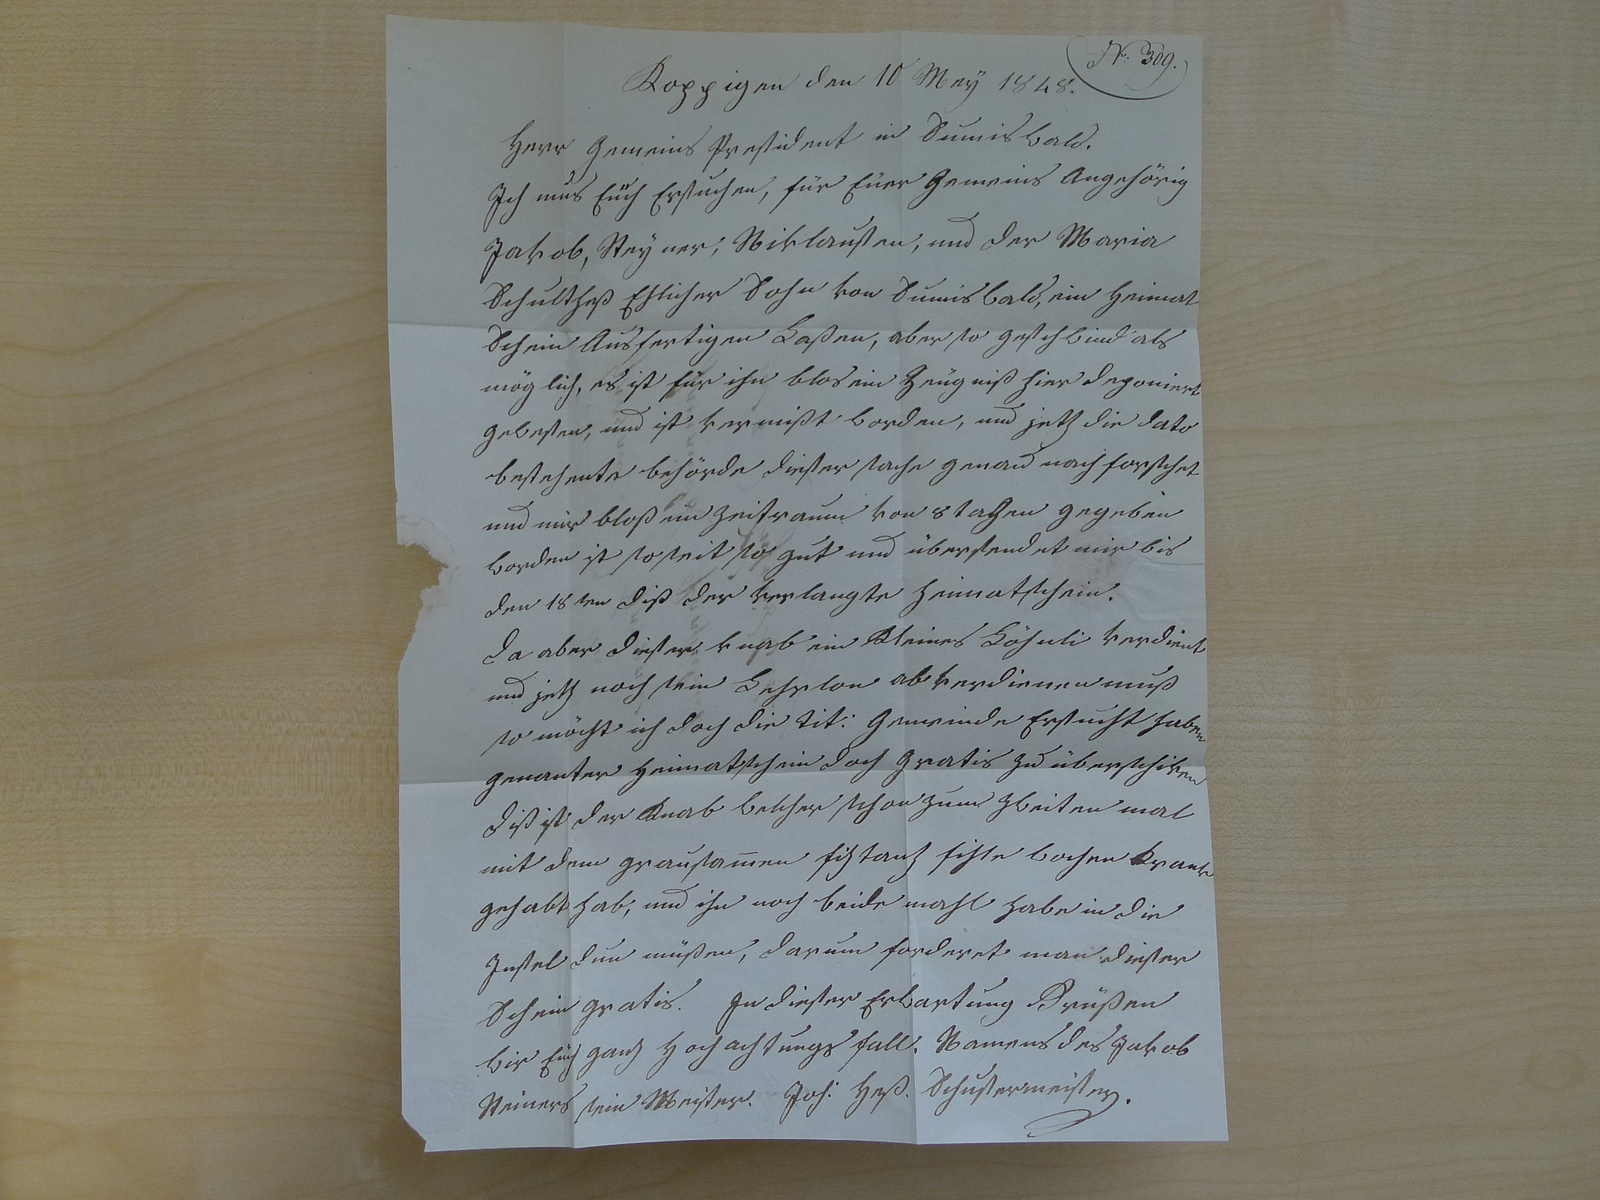 No: 309.
Koppigen den 10 Mey 1848.
Herr Gemeins President in Sumiswald.
Ich mus Eüch Ersuchen, für Eüer Gemeins Angehörig
Jakob, Steyner, Niklausen, und der Maria
Schultheß Ehlicher Sohn von Sumiswald, ein Heimat
Schein Ausfertigen Laßen, aber so geschwind als
möglich, es ist für ihn blos ein Zeügniß hier deponiert
gewesen, und ist vermißt worden, und jetz die dato
bestehente behörde dieser sache genau nach forschet
und mir bloß ein Zeitraum von 8 tagen gegeben
worden ist so seit so gut und übersendet mir bis
den 18ten diß der verlangte Heimatschein.
Da aber dieser knab ein kleines Löhnli verdient
und jetz noch sein Lehrlon abverdienen muß
so möcht ich doch die tit: Gemeinde Ersucht haben
genanter Heimatschein doch Gratis zu überschiken
diß ist der Knab welcher schon zum zweiten mal
mit dem grausamen fihle wochen krank
gehabt hab, und ihn noch beide mahl habe in die
Insel dun müßen, darum forderet man dieser
Schein gratis. In dieser Erwartung Grüßen
wir Eüch ganz Hochachtungs fall. Namens des Jakob
Steiners sein Meister. Joh: Heß. Schustermeister.